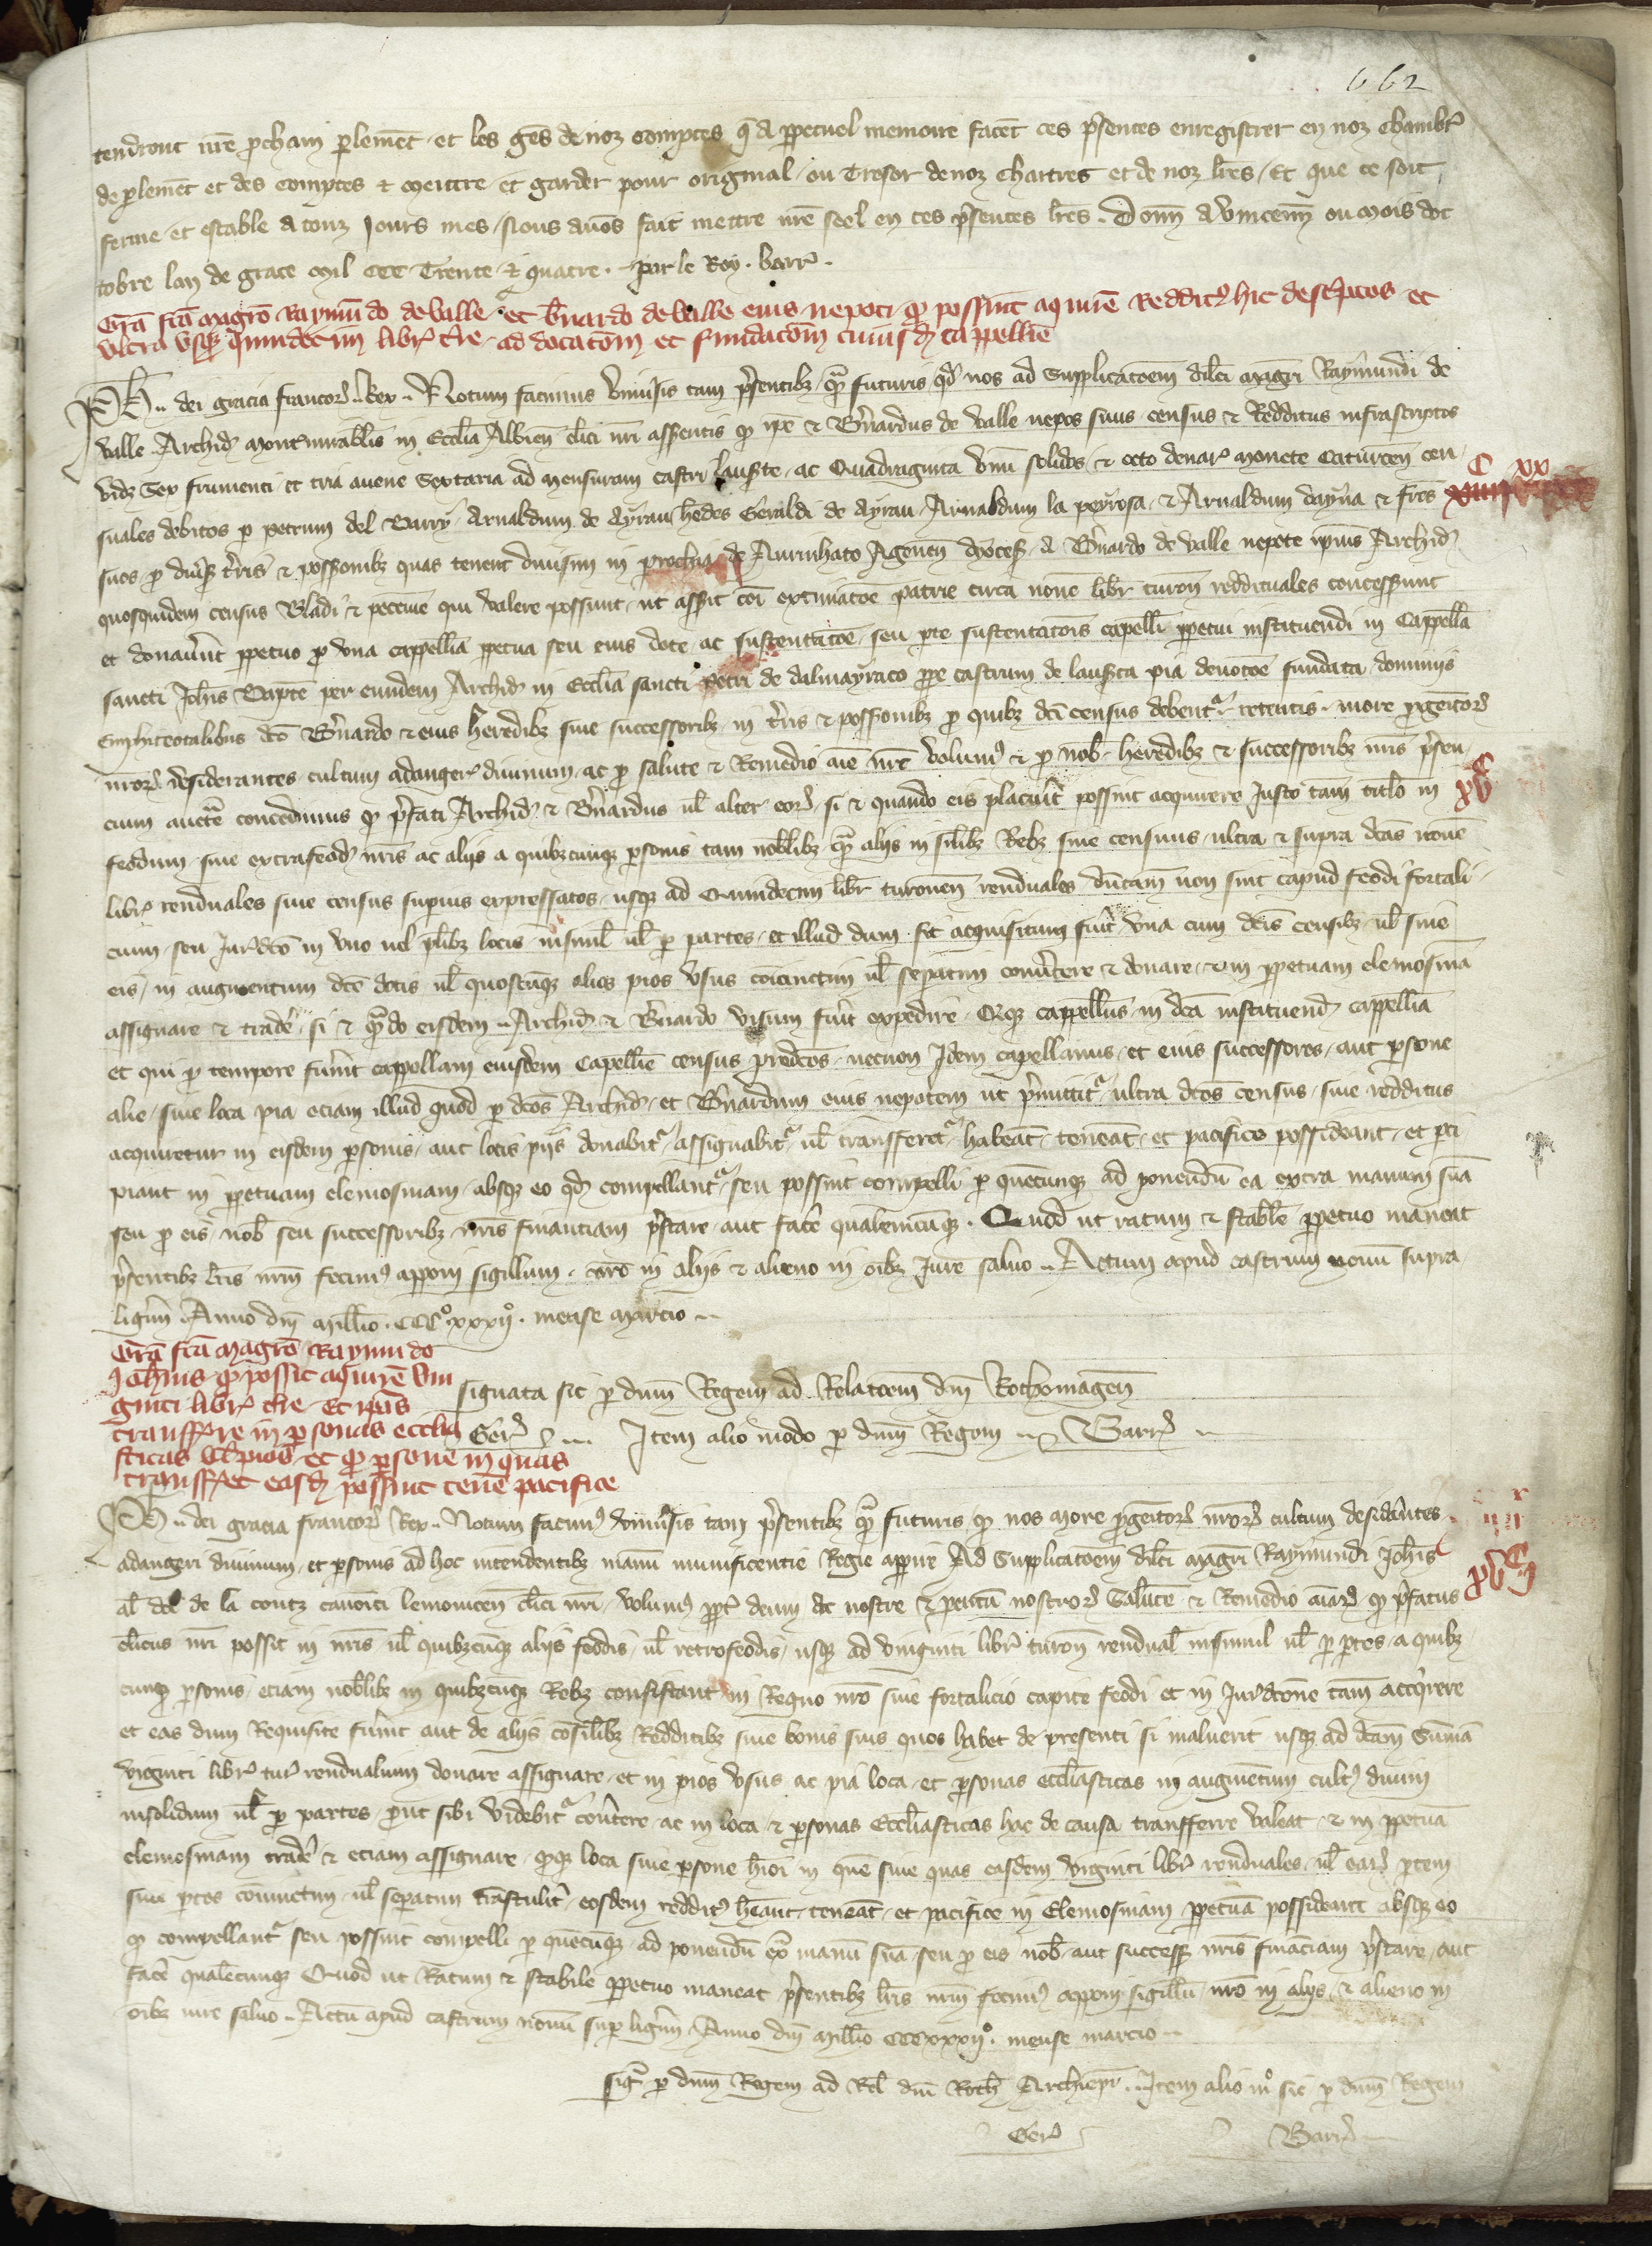 662
tendront nr̄e p̱chain p̱lemēt et les gēs de noz comptes q̄ a p̱petuel memoire facēt ces p̄sentes enregistrer en noz chambr̄
de p̱lemēt et des comptes & mettre et garder pour original ou tresor de noz chartres et de noz lr̄es / Et que ce soit
ferme et estable a touz jours mes / Nous auōs fait mettre nr̄e seel en ces p̄sentes lr̄es . Donn̄ a vincenn̄ ou mois doc
tobre lan de grace mil ccc Trente & quatre . par le Roy . barr̄ .
Grā fcā magr̄o Raymūdo de valle et b̄nardo de valle eius nepoti q̱ possint aquirē Redditꝰ hic desc̄ptos et
vltra vsq̱ quindecim libr̄ t̄re ad dotacōm et fundacōm cuiusd̄ cappell̄ie
Ph̄ .. dei gracia francor̄ Rex .. Notum facimus vniu̓sis tam p̄sentibꝫ q̄ꝫ futuris qd̓ nos ad supplicacōem dilc̄i magr̄i Raymundi de
valle Archid̄ montismirabil̄is in Ecc̄lia Albien̄ cl̄ici nr̄i assentis q̱ ip̄e & B̄nardus de valle nepos suus census & Redditus infrascriptos
vidꝫ Sex frumenti et tria auene Sextaria ad mensuram castri lauserte ac Quadraginta vnū solidos & octo denar̄ monete Caturcen̄ cen
C xx
suales debitos p̱ petrum del Barry Arnaldum de Ayrau hēdes Geraldi de Ayrau Arnaldum la peyrosa & Arnaldum dayrā & fr̄es
suos p̱ diu̓s̄ t̄ris & possonibꝫ quas tenent diuisim in p̱rochia de Aurinhaco Agennen̄ dyoces̄ a B̄nardo de valle nepote ip̄ius Archid̄
quosquidem census bladi & pecunie qui valere possunt ut asserit cōi extimacōe patrie circa nouē libr̄ turon̄ reddituales concesserunt
et donau̓unt p̱petuo p̱ vna cappell̄ia p̱petua seu eius dote ac sustentacōe seu p̱te sustentacōis capell̄i p̱petui instituendi in Cappell̄a
sancti Joh̄is Bapte per eundem Archid̄ in Ecc̄lia sancti Petri de dalmayraco p̱pe castrum de lauserta pia deuotōe fundata dominiis
Emphiteotalibus dc̄o B̄nardo & eius heredibꝫ siue successoribꝫ in t̄ris & possonibꝫ p̱ quibꝫ dc̄i census debent̄ retentis . more p̱genitor̄
nror̄ desiderantes cultum adaugeri diuinum ac p̱ salute & Remedio aīe nr̄e volumꝰ & p̱ nob̄ heredibꝫ & successoribꝫ nr̄is p̄sen
cium auct̄e concedimus q̱ p̄fati Archid̄ & B̄nardus ul̄ alter eor̄ si & quando eis placu̓it possint acquirere Justo tam̄ titl̄o in
C
xv
feodum siue extrafeod̄ nr̄is ac aliis a quibꝫcunqꝫ p̱sonis tam nob̄libꝫ q̄ꝫ aliis in sil̄ibꝫ Rebꝫ siue censuus ultra & supra dc̄as nouē
libr̄ renduales siue census superius expressatos usqꝫ ad Quindecim libr̄ turonen̄ renduales dūtam̄ non sint capud feodi fortali
cium seu Jur̄dc̄o in vno uel pl̄ibꝫ locis insimul ul̄ p̱ partes et illud dum sit acquisitum fu̓it vna cum dc̄is censibꝫ ul̄ sine
eis in augmentum dc̄e dotis ul̄ quoscūqꝫ alios pios vsus coniunctim ul̄ sep̱atim conu̓tere & donare & in p̱petuam elemosinā
assignare & tradē si & q̄ndo eisdem .. Archid̄ & B̄nardo visum fu̓it expedire Qqꝫ cappellus in dc̄a instituend̄ cappell̄ia
et qui p̱ tempore fu̓int cappellani eiusdem Capell̄ie census p̄edc̄os necnon Idem capellanus et eius successores aut p̱sone
alie siue loca pia eciam illud quod p̱ dc̄os Archid̄ et B̄nardum eius nepotem ut p̄mittit̄ ultra dc̄os census siue redditus
acquiretur in eisdem p̱sonis aut locis piis donabit̄ assignabit̄ ul̄ transferet̄ habeāt teneāt et pacifice possideant et p̱ci
piant in p̱petuam elemosinam absqꝫ eo qd̓ compellant̄ seu possint compelli p̱ quēcunqꝫ ad ponendū ea extra manum suā
seu p̱ eis nob̄ seu successoribꝫ nr̄is financiam p̄stare aut facē qualemcūqꝫ . Quod ut ratum & stabile p̱petuo maneat
p̄sentibꝫ lr̄is nr̄m fecimꝰ apponi sigillum . nr̄o in aliis & alieno in oībꝫ Jure saluo .. Actum apud castrum nouū supra
ligim̄ Anno dn̄i mill̄io . CCC° xxxij° . mense marcio ..
Grā fcā magr̄o Raymūdo
Joh̄nis q̱ possit aqirē vin
ginti libr̄ t̄re Et ip̄as
transferre in p̱sonas eccl̄ia
sticas vl̄ pios et q̱ p̱sone in quas
transferret easd̄ possint tenē pacifice
signata sic p̱ dnm̄ Regem ad Relacōem dn̄i Rothomagen̄
Ger̄ .... Item alio modo p̱ dnm̄ Regem .. Barr̄
Ph̄ .. dei gracia francor̄ Rex .. Notum facimꝰ vniu̓sis tam p̄sentibꝫ q̄ꝫ futuris q̱ nos more p̱genitor̄ nror̄ cultum desid̓antes
adaugeri diuinum et p̱sonis ad hoc intendentibꝫ manū munificentie Regie ap̱ire Ad Supplicacōem dilc̄i magr̄i Raymundi Joh̄is
al̄ dc̄i de la contz canonici lemouicen̄ cl̄ici nr̄i volumꝰ p̱p̄t deum ac nostre & parentū nostror̄ Salute & Remedio aīar̄ q̱ p̄fatus
xv C
cl̄icus nr̄ possit in nr̄is ul̄ quibꝫcūqꝫ aliis feodis ul̄ retrofeodis usqꝫ ad viginti libr̄ turon̄ rendual̄ insimul ul̄ p̱ p̱tes a quibꝫ
cunqꝫ p̱sonis eciam nob̄libꝫ in quibꝫcūqꝫ Rebꝫ consistant in Regno nr̄o sine fortalicio capite feodi et in Jur̄dc̄one tam̄ accq̄rere
et eas dum Requisite fu̓int aut de aliis cōsil̄ibꝫ Redditibꝫ siue bonis suis quos habet de presenti si maluerit usqꝫ ad dc̄am Sūmā
viginti libr̄ tur̄ rendualium donare assignare et in pios vsus ac pia loca et p̱sonas eccl̄iasticas in augmentum cultꝰ diuini
insolidum ul̄ p̱ partes p̱ut sibi videbit̄ cōu̓tere ac in loca & p̱sonas Eccl̄iasticas hac de causa transferre valeat & in p̱petuā
elemosinam tradē & eciam assignare q̱qꝫ loca siue p̱sone hm̄oi in que siue quas easdem viginti libr̄ renduales ul̄ ear̄ p̱tem
siue p̱tes coniunctim ul̄ separatim trāstulit̄ eosdem redditꝰ hēant teneāt et pacifice in Elemosinam p̱petuā possideant absqꝫ eo
q̱ compellant̄ seu possint compelli p̱ quēcūqꝫ ad ponendū ex̄ manū suā seu p̱ eis nob̄ aut success̄ nr̄is financiam p̄stare aut
facē qualēcunqꝫ Quod ut Ratum & stabile p̱petuo maneat p̄sentibꝫ lr̄is nr̄m fecimꝰ apponi sigillū nr̄o in aliis & alieno in
oībꝫ iure saluo .. Actū apud castrum nouū sup̱ ligim̄ Anno dn̄i mill̄io CCCxxxij° . mense marcio ..
sig̓ p̱ dnm̄ Regem ad Rel̄ dn̄i Roth̄ Archiep̄i .. Item alio m° sic p̱ dnm̄ Regem
Ger̄ Barr̄